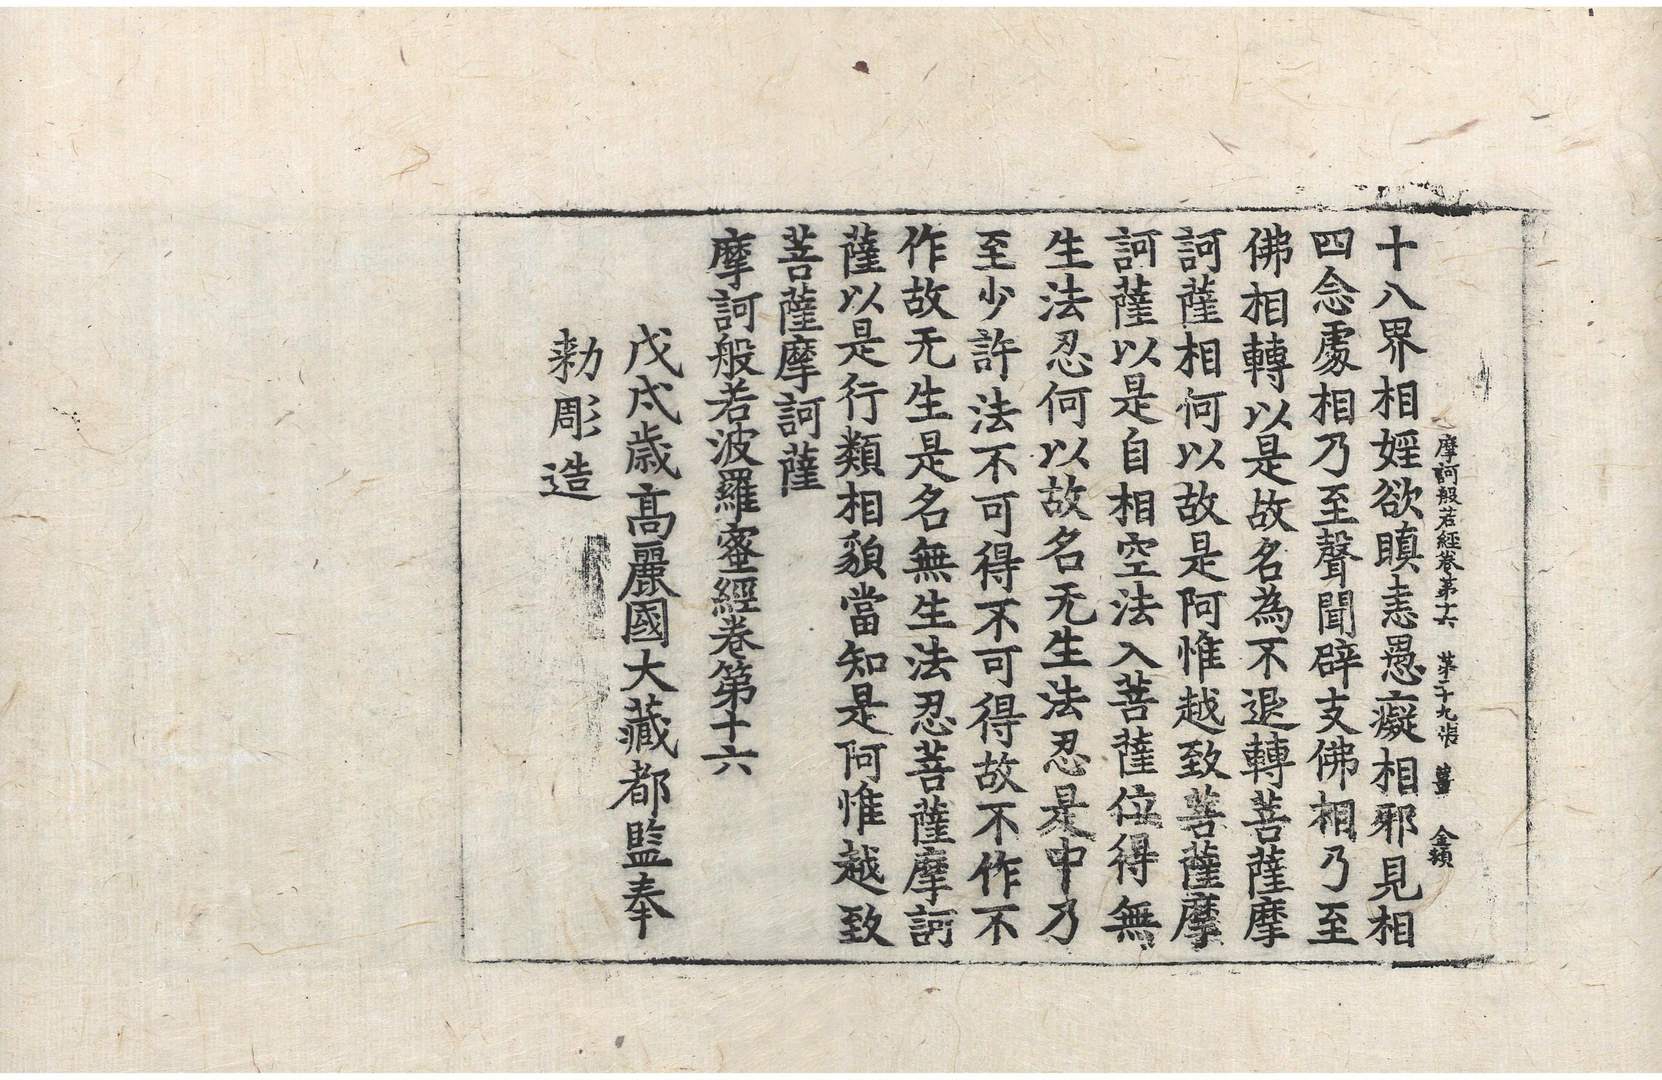 摩訶般若經卷第十六 第二十九張 薑 金頙
十八界相婬欲瞋恚愚癡相邪見相
四念處相乃至聲聞辟支佛相乃至
佛相轉以是故名為不退轉菩薩摩
訶薩相何以故是阿惟越致菩薩摩
訶薩以是自相空法入菩薩位得無
生法忍何以故名无生法忍是中乃
至少許法不可得不可得故不作不
作故无生是名無生法忍菩薩摩訶
薩以是行類相貌當知是阿惟越致
菩薩摩訶薩
摩訶般若波羅蜜經卷第十六
戊戌歲高麗國大藏都監奉
勑彫造